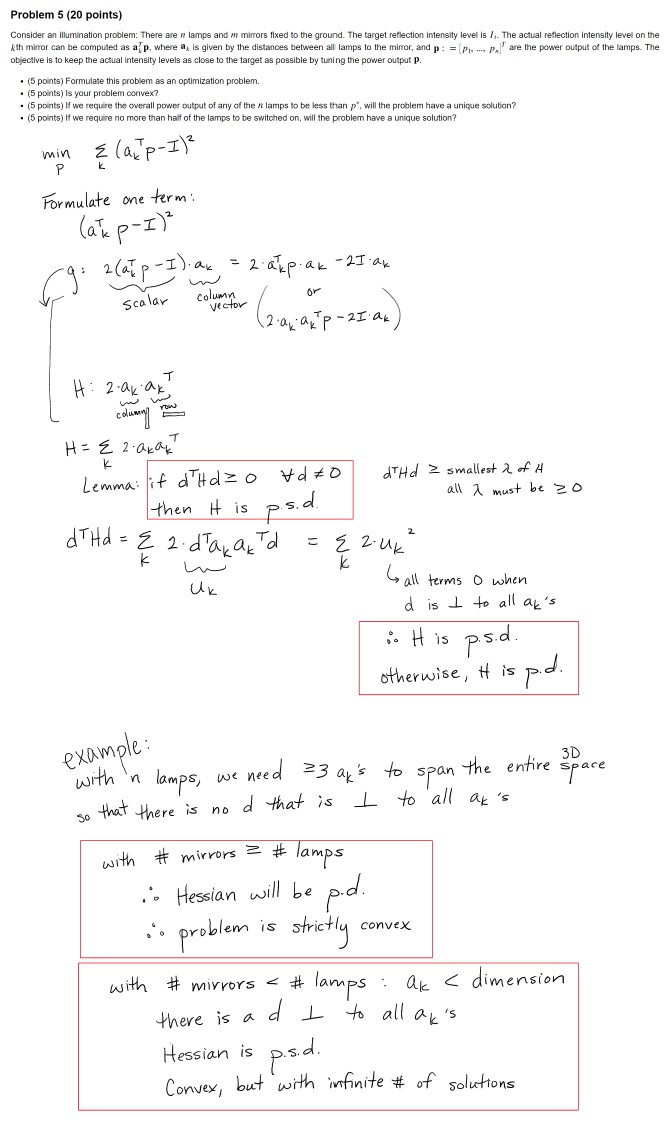 Problem 5 (20 points)
Consider an illumination problem: There are n lamps and m mirrors fixed to the ground. The target reflection intensity level is Iₜ. The actual reflection intensity level on the
kth mirror can be computed as aₖᵀp, where aₖ is given by the distances between all lamps to the mirror, and p : = [p₁, ..., pₙ]ᵀ are the power output of the lamps. The
objective is to keep the actual intensity levels as close to the target as possible by tuning the power output p.
• (5 points) Formulate this problem as an optimization problem.
• (5 points) Is your problem convex?
• (5 points) If we require the overall power output of any of the n lamps to be less than p*, will the problem have a unique solution?
• (5 points) If we require no more than half of the lamps to be switched on, will the problem have a unique solution?
min Σ (aₖᵀp-I)²
p k
Formulate one term:
(aₖᵀ p-I)²
g: 2(aₖᵀp-I)·aₖ = 2·aₖᵀp·aₖ -2I·aₖ
scalar column vector or
(2·aₖ·aₖᵀp -2I·aₖ)
H: 2·aₖ·aₖᵀ
column row
H = Σ 2·aₖaₖᵀ
k
Lemma: if dᵀHd ≥ 0 ∀d ≠ 0
then H is p.s.d.
dᵀHd ≥ smallest λ of H
all λ must be ≥ 0
dᵀHd = Σ 2·dᵀaₖaₖᵀd = Σ 2·uₖ²
k k
uₖ
all terms 0 when
d is ⊥ to all aₖ's
∴ H is p.s.d.
otherwise, H is p.d.
example:
with n lamps, we need ≥3 aₖ's to span the entire 3D space
so that there is no d that is ⊥ to all aₖ's
with # mirrors ≥ # lamps
∴ Hessian will be p.d.
∴ problem is strictly convex
with # mirrors < # lamps : aₖ < dimension
there is a d ⊥ to all aₖ's
Hessian is p.s.d.
Convex, but with infinite # of solutions